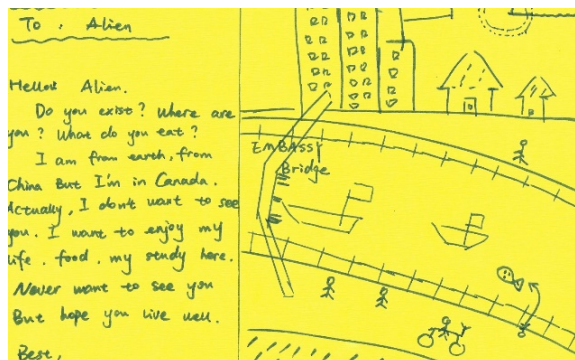 To : Alien
Hello! Alien.
Do you exist? Where are
you? What do you eat?
I am from earth, from
China But I'm in Canada.
Actually, I don't want to see
you. I want to enjoy my
life. food. my study here.
Never want to see you
But hope you live well.
Best,
EMBASSY
Bridge